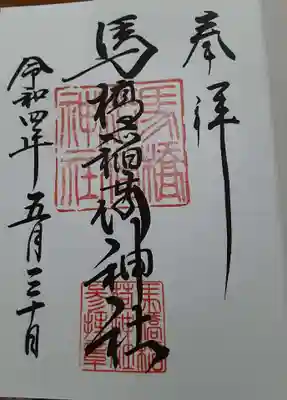 奉拝
馬橋稲荷神社
令和四年五月三十日
馬橋
神社
馬橋稲
荷神社
参拝章